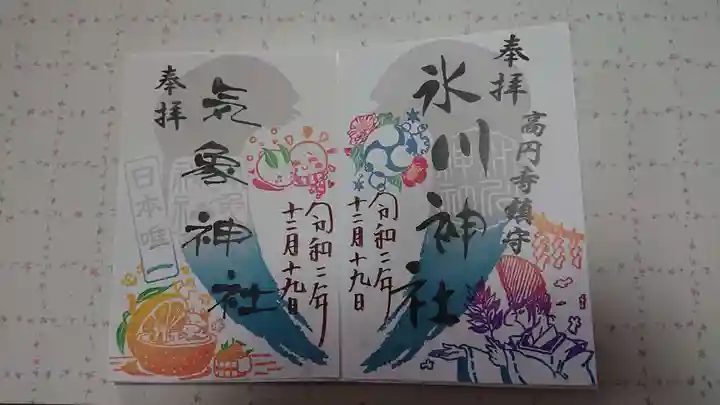 奉拝
高円寺鎮守
氷川神社
令和二年
十二月十九日
奉拝
気象神社
日本唯一
令和二年
十二月十九日